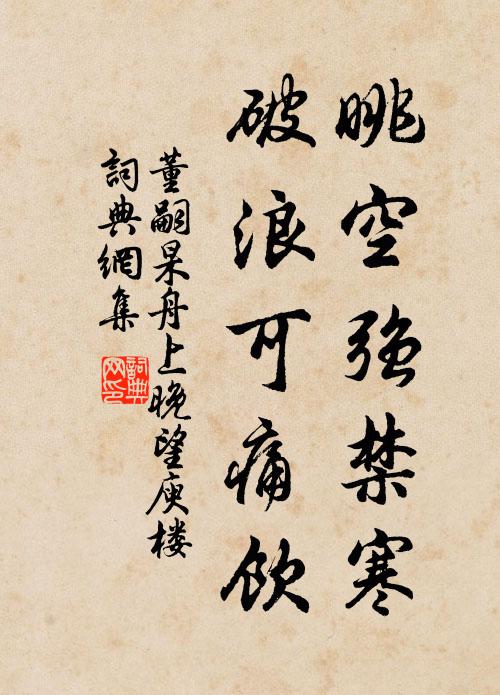 眺空強禁寒
破浪可痛飲
董嗣杲舟上晚望庾楼
詞典網集
詞典網印